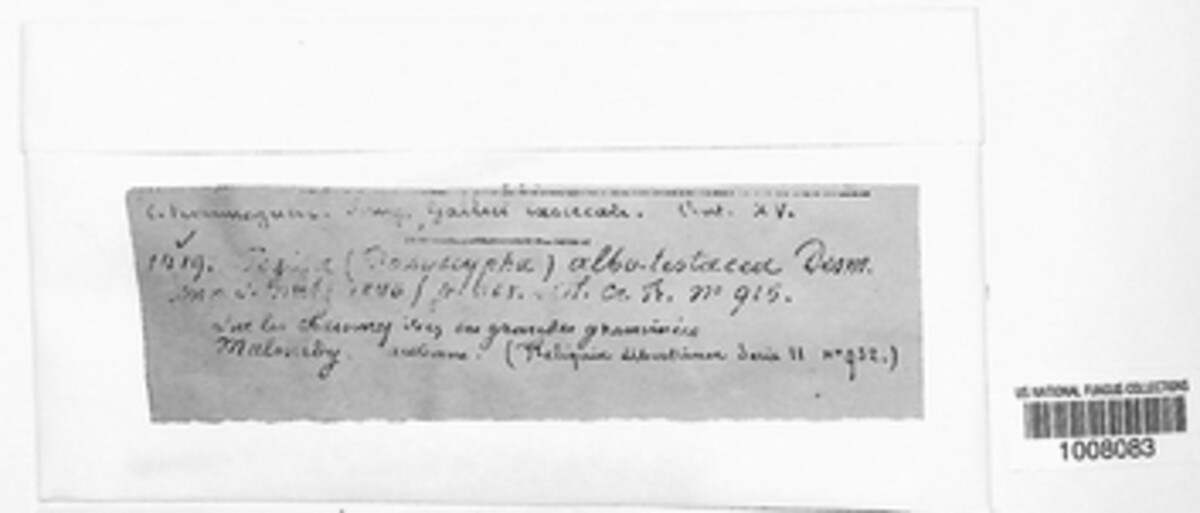 C. Roumeguère. Fung. Gallici exsiccati. Cent. XV.
1419. Peziza (Dasyscypha) albo-testacea Desm.
Ann. S. Cr. Fr. n° 915.
Sur les chaumes des grandes graminées
Malmedy. (Reliquiae Libertianae Serie II n° 932.)
US NATIONAL FUNGUS COLLECTIONS
1008083